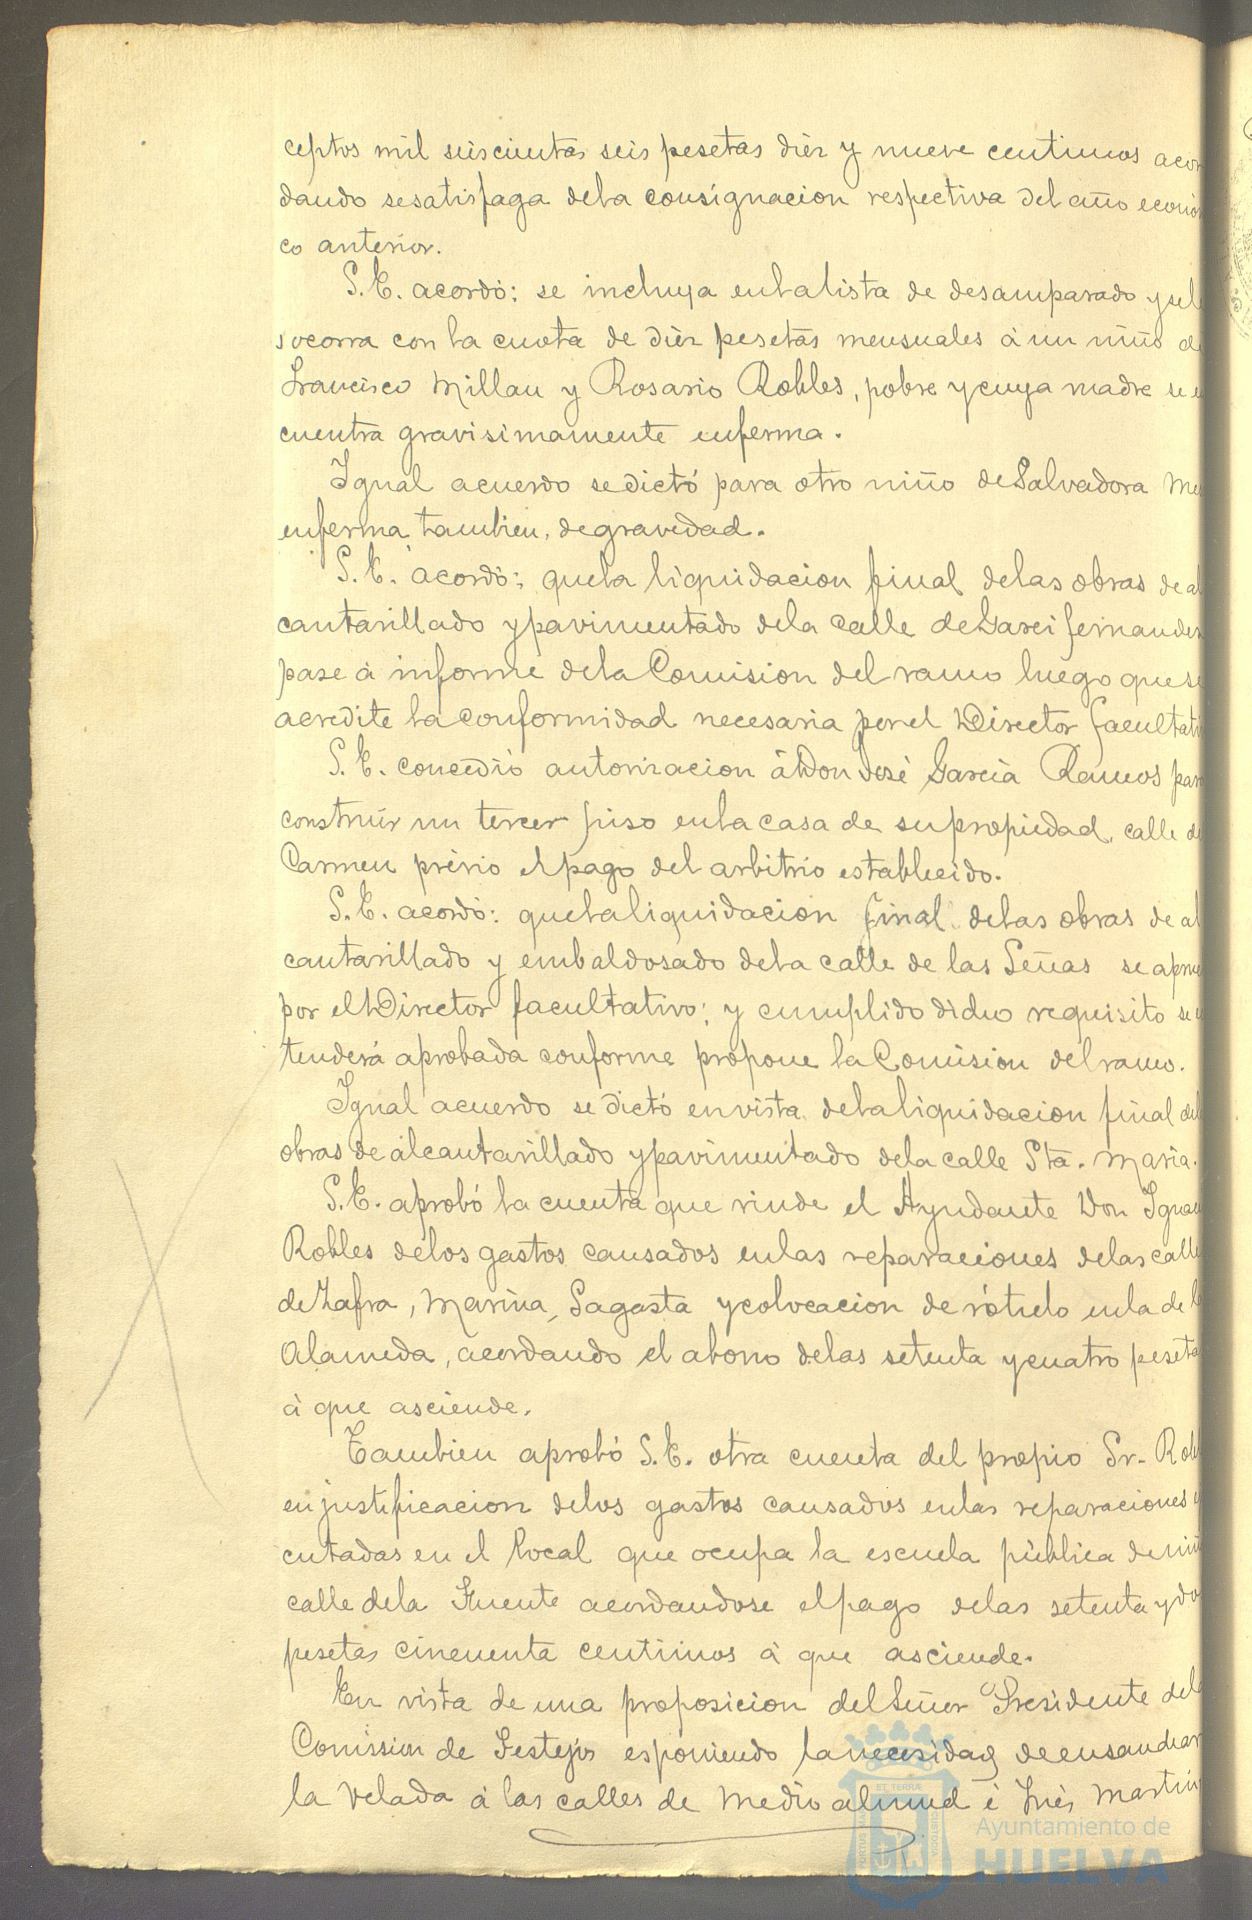 ceptos mil seiscientas seis pesetas diez y nueve centimos acor
dando sesatisfaga dela consignacion respectiva del año econó
co anterior.
S. E. acordó: se incluya enlalista de desamparado y sele
socorra con la cuota de diez pesetas mensuales á un niño de
Francisco Millan y Rosario Robles, pobre y cuya madre se en
cuentra gravisimamente enferma.
Igual acuerdo sedictó para otro niño deSalvadora
enferma tambien, degravedad.
S. E. acordó: quela liquidacion final delas obras de al
cantarillado ypavimentado dela calle deGarci fernandez
pase á informe dela Comision del ramo luego quese
acredite la conformidad necesaria porel Director facultati
S. E. concedió autorizacion áDon José Garcia Ramos para
construir un tercer piso enla casa de supropiedad, calle de
Carmen prévio elpago del arbitrio establecido.
S. E. acordó: quelaliquidacion final delas obras de al
cantarillado y embaldosado dela calle de las Señas se aprue
por elDirector facultativo; y cumplido dicho requisito se en
tenderá aprobada conforme propone la Comision delramo.
Igual acuerdo se dictó envista delaliquidacion final del
obras de alcantarillado ypavimentado dela calle Sta. Maria.
S. E. aprobó la cuenta que rinde el Ayudante Don Ignac
Robles delos gastos causados enlas reparaciones delas calle
deZafra, Marina, Sagasta ycolocacion de rótulo enla de l
Alameda, acordando el abono delas setenta ycuatro peseta
á que asciende.
Tambien aprobó S. E. otra cuenta del propio Sr. Robl
enjustificacion delos gastos causados enlas reparaciones
cutadas en el local que ocupa la escuela pública de niñ
calle dela Fuente acordandose elpago delas setenta y do
pesetas cincuenta centimos á que asciende.
En vista de una proposicion delSeñor Presidente dela
Comision de Festejos esponiendo lanecesidad deensanchar
la Velada á las calles de Medio almud é Inés Martin
PORTUS MARIS
ET TERRÆ
CUSTODIA
Ayuntamiento de
HUELVA